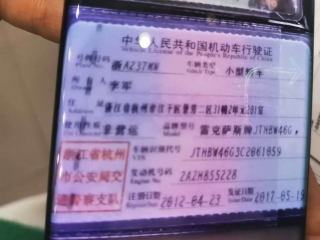 中华人民共和国机动车行驶证
Vehicle License of the People's Republic of China
号牌号码 浙AZ37MW 车辆类型 小型轿车
Plate No. Vehicle Type
所有人 李军
Owner
住址 浙江省杭州市江干区景芳二区31幢2单元201室
Address
使用性质 非营运 品牌型号 雷克萨斯牌JTHBW46G
浙江省杭州 车辆识别代号 JTHBW46G3C2061059
VIN
市公安局交 发动机号码 2AZH855228
Engine No.
通警察支队 注册日期 2012-04-23 发证日期 2017-05-19
Register Date Issue Date